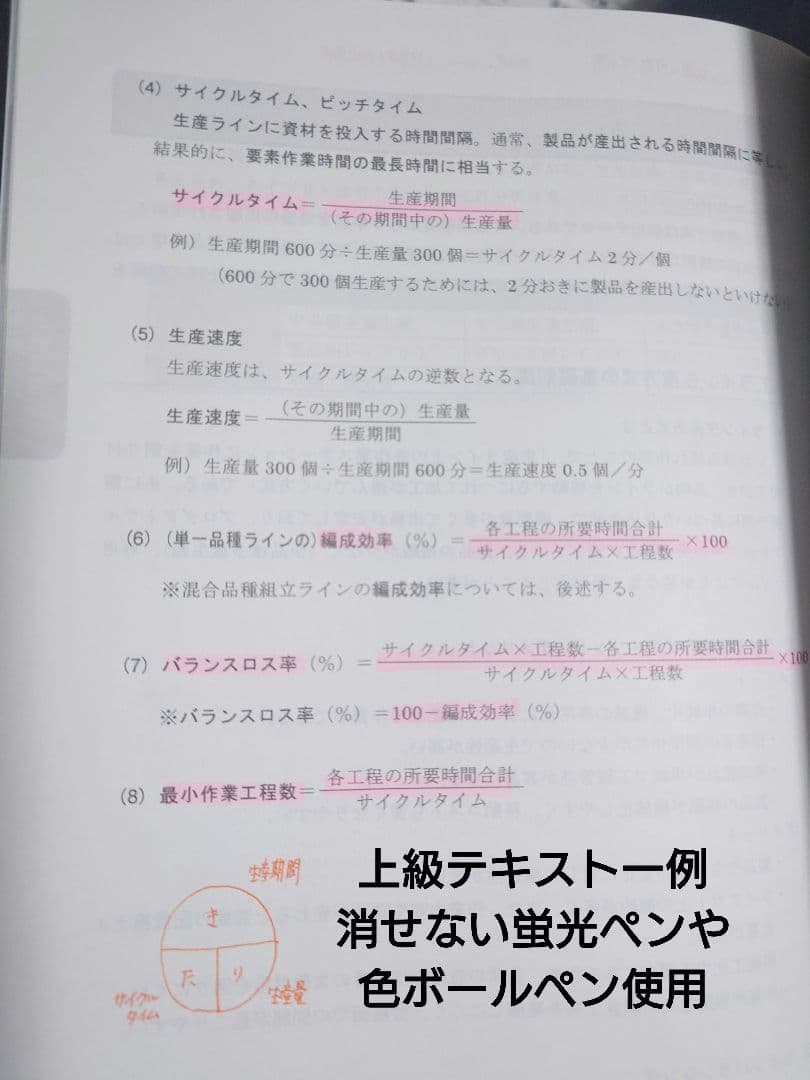 (4) サイクルタイム、ピッチタイム
生産ラインに資材を投入する時間間隔。通常、製品が産出される時間間隔に等し
結果的に、要素作業時間の最長時間に相当する。
サイクルタイム＝ 生産期間
（その期間中の）生産量
例）生産期間 600 分÷生産量 300 個＝サイクルタイム 2 分／個
（600 分で 300 個生産するためには、2 分おきに製品を産出しないといけない
(5) 生産速度
生産速度は、サイクルタイムの逆数となる。
生産速度＝ （その期間中の）生産量
生産期間
例）生産量 300 個÷生産期間 600 分＝生産速度 0.5 個／分
(6)（単一品種ラインの）編成効率（%）＝ 各工程の所要時間合計 ×100
サイクルタイム×工程数
※混合品種組立ラインの編成効率については、後述する。
(7) バランスロス率（%）＝ サイクルタイム×工程数－各工程の所要時間合計 ×100
サイクルタイム×工程数
※バランスロス率（%）＝100－編成効率（%）
(8) 最小作業工程数＝ 各工程の所要時間合計
サイクルタイム
生産期間
き
た り
サイクル
タイム
生産量
上級テキスト一例
消せない蛍光ペンや
色ボールペン使用